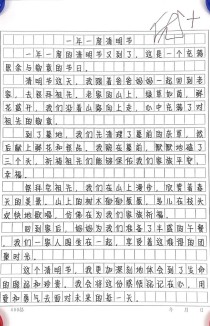 一年一度清明节
一年一度的清明节又到了，这是一个充满
思念与敬意的节日。
清明节这天，我跟着爸爸妈妈一起回到老
家，去祭拜祖先。老家的山上，绿草如茵，鲜
花盛开，我们沿着山路向上走，心中充满了对
祖先的敬意。
到了墓地，我们先清理了墓前的杂草，然
后献上鲜花和祭品。我跪在墓前，默默地磕了
三个头，祈祷祖先们能够保佑我们家族平安、
幸福。
祭拜完祖先，我们在山上漫步，欣赏着春
天的美景。山上的树木郁郁葱葱，鸟儿在枝头
欢快地歌唱，仿佛在为我们家族祈福。
回到家后，奶奶为我们准备了丰盛的午餐
，我们一家人围坐在一起，享受着这难得的团
聚时光。
这个清明节，我更加深刻地体会到了生命
的围和珍贵，我会将这份感悟铭记在心，用
爱和勇气去面对未来的每一天。